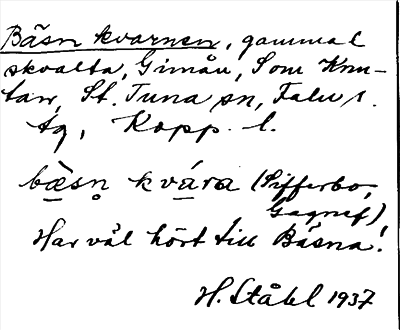 Bäsn kvarnen, gammal
skvalta, Gimån, Som Knu-
tar, St. Tuna sn, Falu s.
tg, Kopp. l.
bæ̀sn̥ kvára (Sifferbo,
Gagnef)
Har väl hört till Bäsna!
H. Ståhl 1937